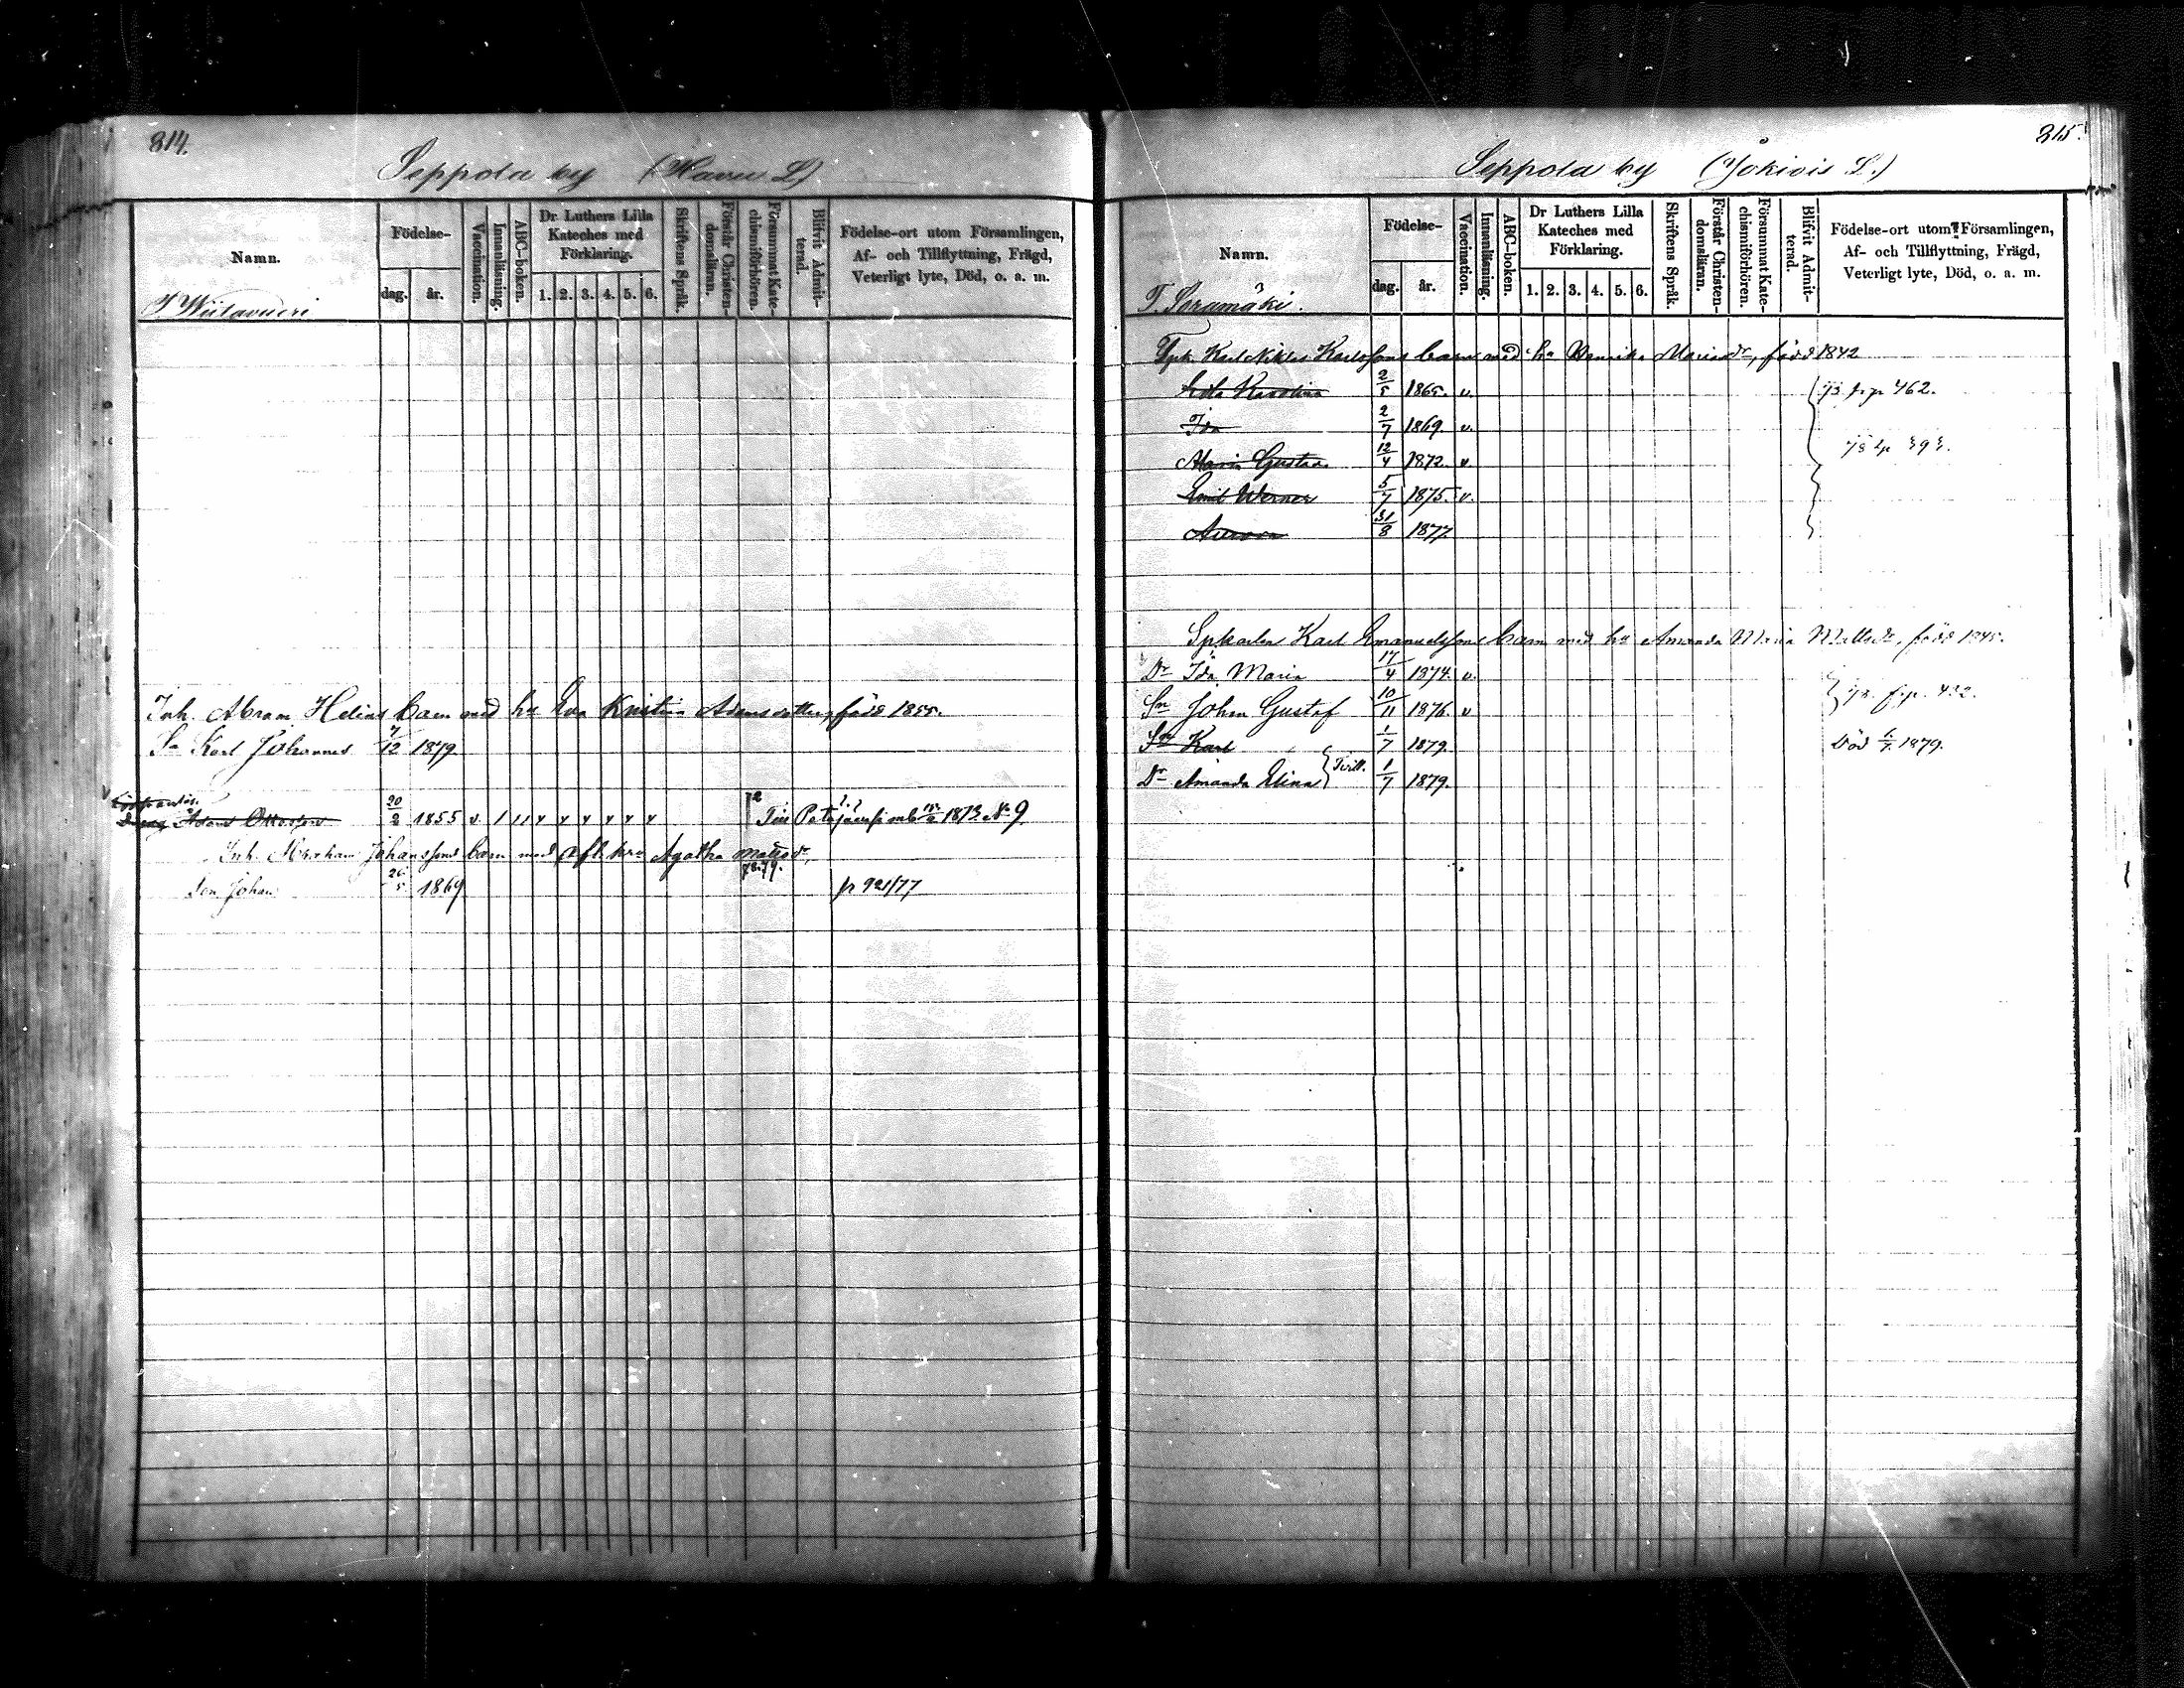 314.
Seppola by (Wavu L)
Namn.
Födelse-
dag. år.
Vaccination.
Innanläsning.
ABC-boken.
Dr Luthers Lilla Kateches med Förklaring.
1. 2. 3. 4. 5. 6.
Skriftens Språk.
Förstår Christendomsläran.
Försummat Katechismiförhören.
Blifvit Admitterad.
Födelse-ort utom Församlingen,
Af- och Tillflyttning, Frägd,
Veterligt lyte, Död, o. a. m.
Inh. Abram Helins barn med hu Eva Kristina Adamsdotter, född 1855.
Sn Karl Johannes 7/12 1879
Dräng Adam Ottosson 20/2 1855 v. 1873 No 9
Inh. Abraham Johanssons barn med afl. hu Agatha Matsdr,
78.79.
Son Johan 26/5 1869 p 921/77
315.
Seppola by (Jokiois L.)
Namn.
Födelse-
dag. år.
Vaccination.
Innanläsning.
ABC-boken.
Dr Luthers Lilla Kateches med Förklaring.
1. 2. 3. 4. 5. 6.
Skriftens Språk.
Förstår Christendomsläran.
Försummat Katechismiförhören.
Blifvit Admitterad.
Födelse-ort utom Församlingen,
Af- och Tillflyttning, Frägd,
Veterligt lyte, Död, o. a. m.
T. Soramäki.
Karl Niklas Karlssons barn med hu Henrika Mariadr, född 1842
Karolina 2/5 1865. v. 462.
Ida 2/7 1869 v.
Maria Gustava 12/4 1872. v.
Emil Werner 5/7 1875. v.
Aurora 31/8 1877
Karl Emanuelssons barn med hu Amanda Maria född 1845.
Dr Ida Maria 17/4 1874. v.
Sn Johan Gustaf 10/11 1876. v
Sn Karl 1/7 1879. Död 1879.
Tvill.
Dr Amanda Elina 1/7 1879.